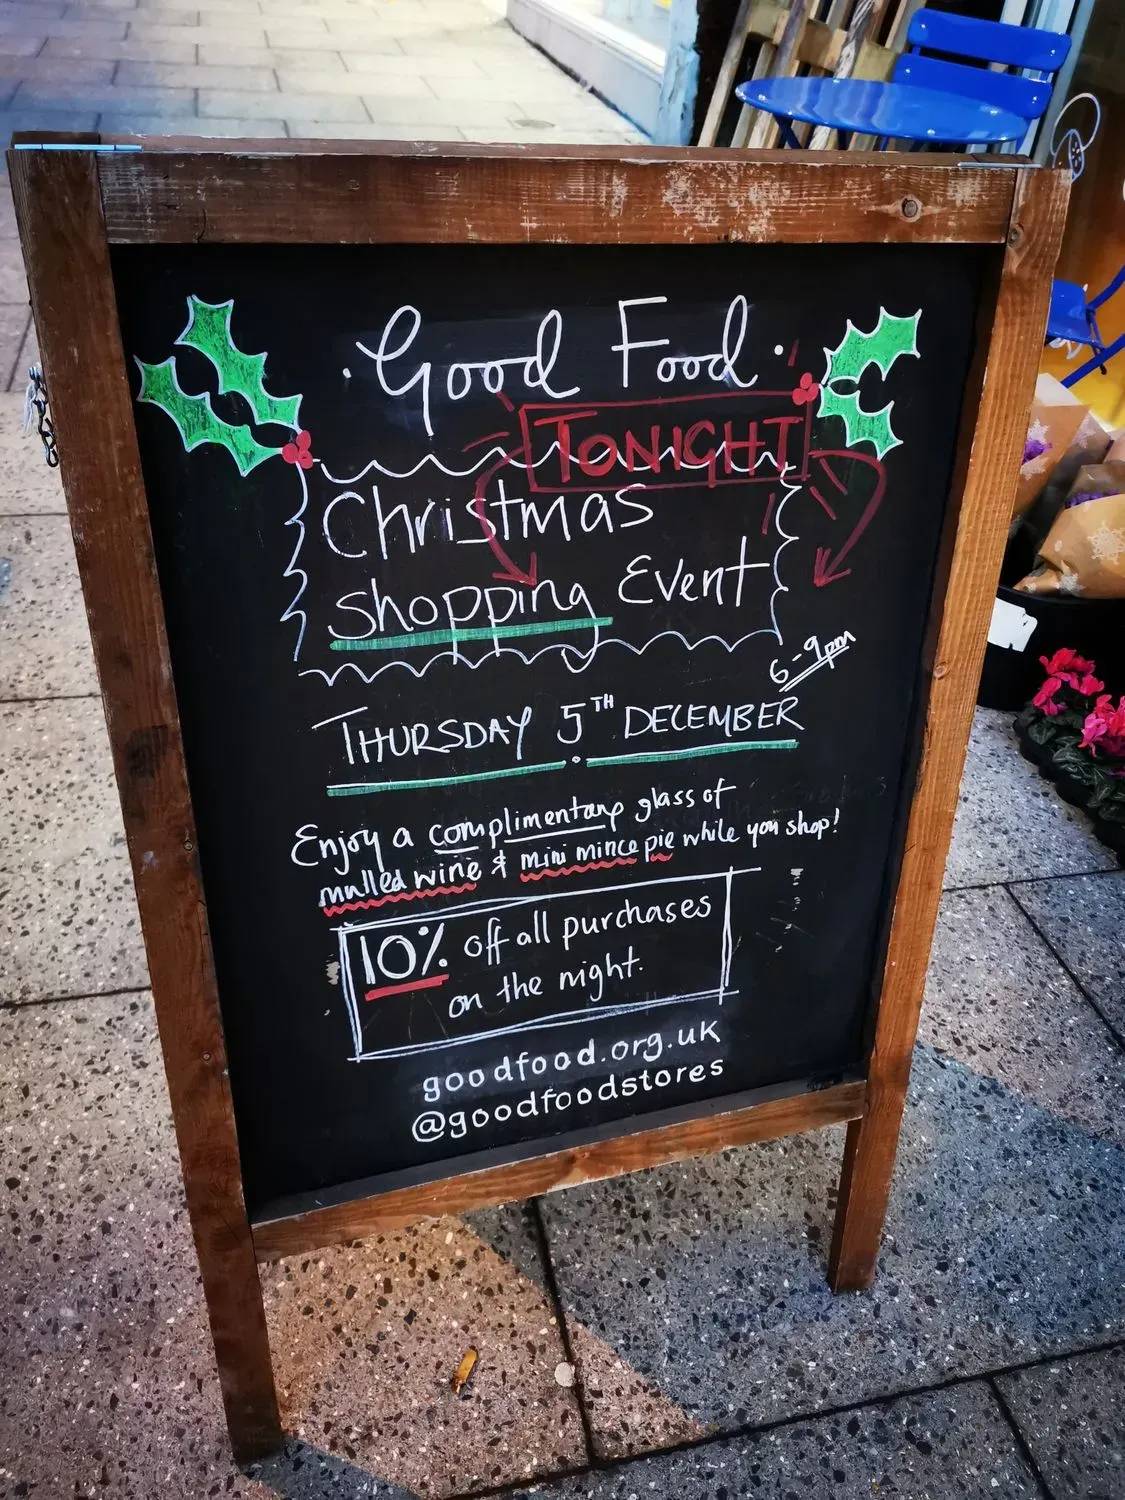 · Good Food ·
TONIGHT
Christmas
Shopping Event
6-9pm
THURSDAY 5TH DECEMBER
Enjoy a complimentary glass of
mulled wine & mini mince pie while you shop!
10% off all purchases
on the night.
goodfood.org.uk
@goodfoodstores